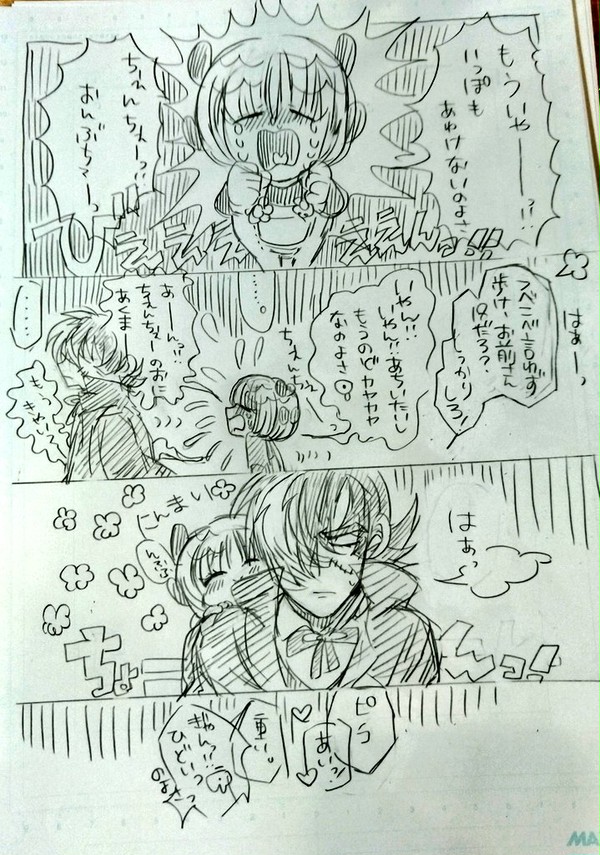 もういやーーー!!
いっぽも
あゆけないのよさ
ちぇんちぇーっ!!
おんぶちてーっ
びええええええんっ!!
はぁーっ
つべこべ言わず
歩け、お前さん
18だろ?
しっかりしろ!
いやん!!
いやん!!あちいたいし
もうのどカヤカヤ
なのよさ
ちぇんちぇ
……
あーーん!!
ちぇんちぇーのおに
あくま
……
はぁっ
にんまい
ちょこーんっ!!
ピノコ
あい?
重い。
ぎゃん!!
ひどいっ
のよさっ
MA